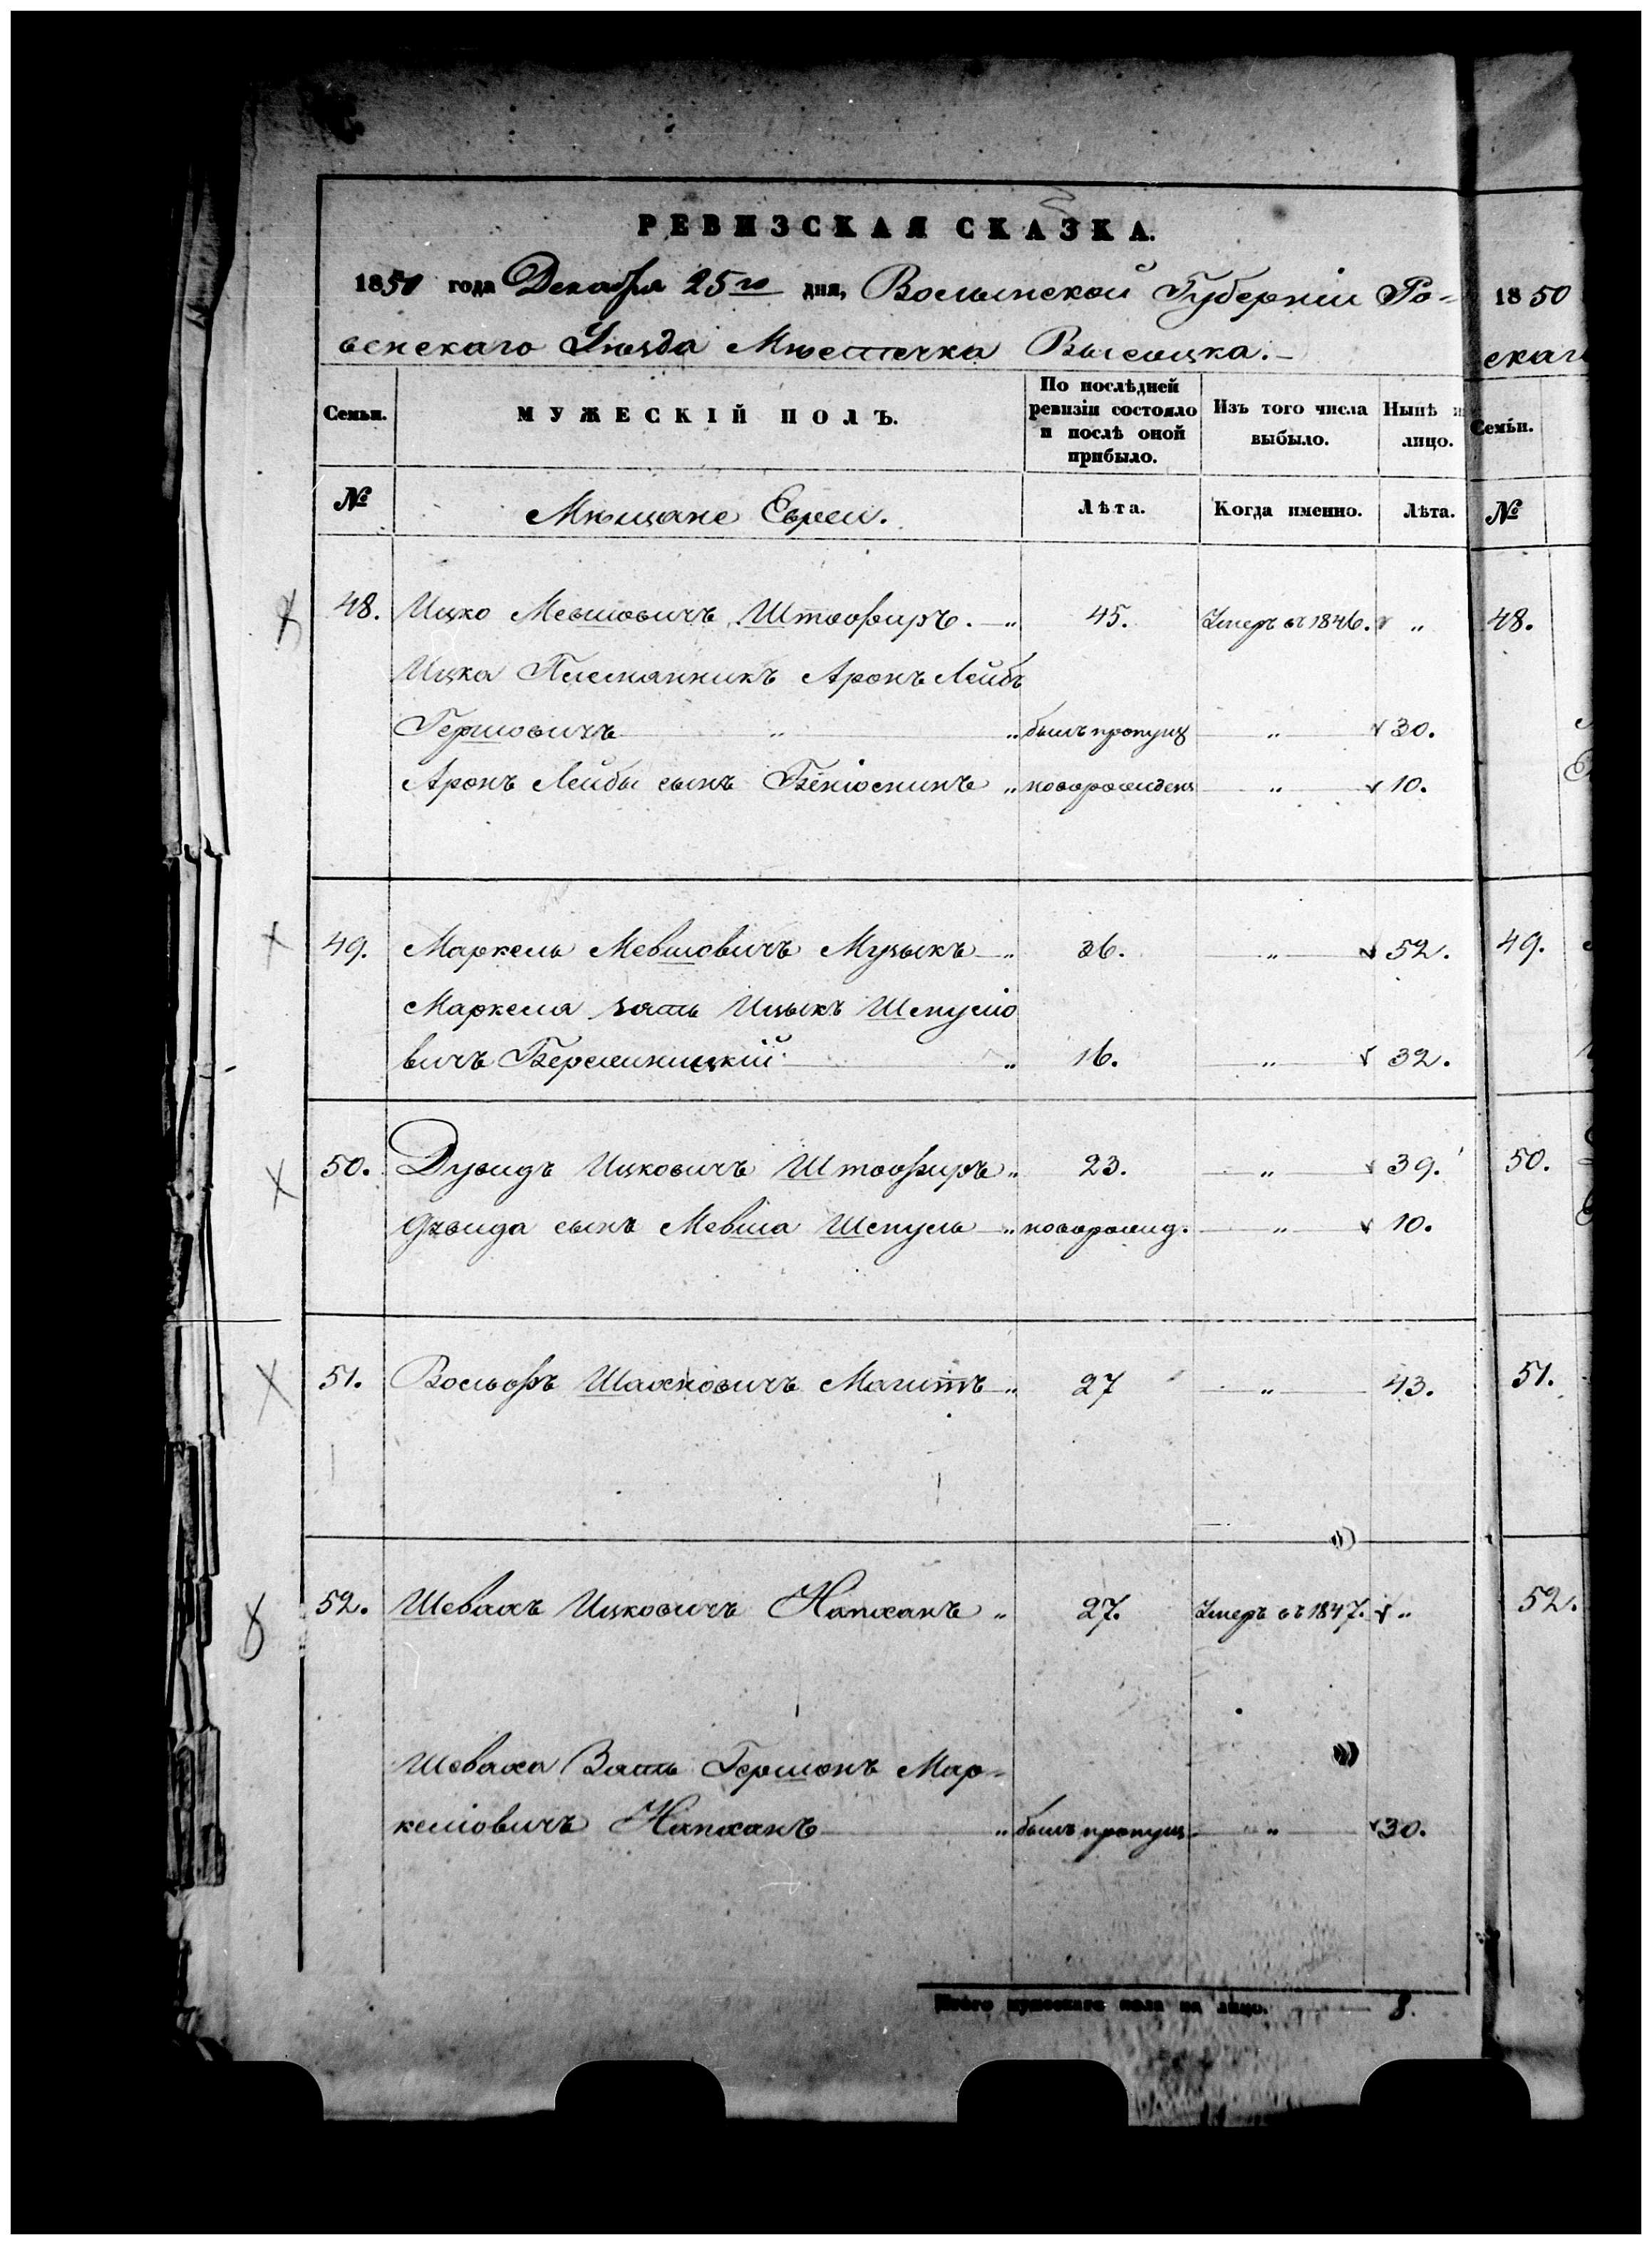 РЕВИЗСКАЯ СКАЗКА.
1850 года Декабря 25го дня, Волынской Губерніи Ро-
венскаго Уѣзда Мѣстечка Высоцка.
Семьи.
МУЖЕСКІЙ ПОЛЪ.
По послѣдней ревизіи состояло и послѣ оной прибыло.
Изъ того числа выбыло.
Нынѣ н лицо.
№ Мѣщане Евреи. Лѣта. Когда именно. Лѣта.
48. Ицко Мевшовичъ Штофиръ. „ 45. Умеръ въ 1846. „
Ицка Племянникъ Аронъ Лейбъ
Гершовичъ „ „ былъ пропущ „ 30.
Аронъ Лейбы сынъ Бениоминъ „ новорожденъ „ 10.
49. Маркель Мевшовичъ Музыкъ „ 36. „ 52.
Маркеля зять Ицыкъ Шепуліо
вичъ Бережницкій „ 16. „ 32.
50. Дувидъ Ицковичъ Штофиръ „ 23. „ 39.
Дувида сынъ Мевша Шепуль „ новорожд. „ 10.
51. Вольфъ Шахновичъ Магитъ „ 27 „ 43.
52. Шевахъ Ицковичъ Напханъ „ 27. Умеръ въ 1847. „
Шеваха Зять Гершонъ Мар-
келіовичъ Напханъ „ былъ пропущ „ 30.
Итого мужескаго пола на лицо. 8.
18 50
скаго
Семьи.
№
48.
49.
50.
51.
52.